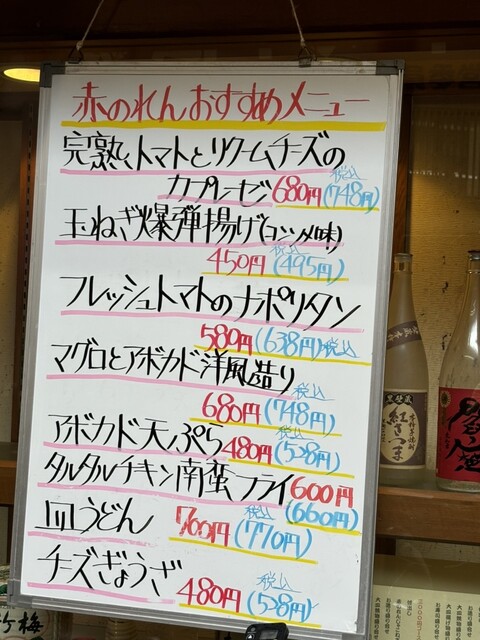 赤のれんおすすめメニュー
完熟トマトとクリームチーズの
カプレーゼ 680円(748円)税込
玉ねぎ爆弾揚げ(コンソメ味)
450円(495円)税込
フレッシュトマトのナポリタン
580円(638円)税込
マグロとアボカド洋風造り
680円(748円)税込
アボカド天ぷら480円(528円)税込
タルタルチキン南蛮フライ600円
(660円)
皿うどん 700円(770円)税込
チーズぎょうざ
480円(528円)税込
紅さつま
竹梅